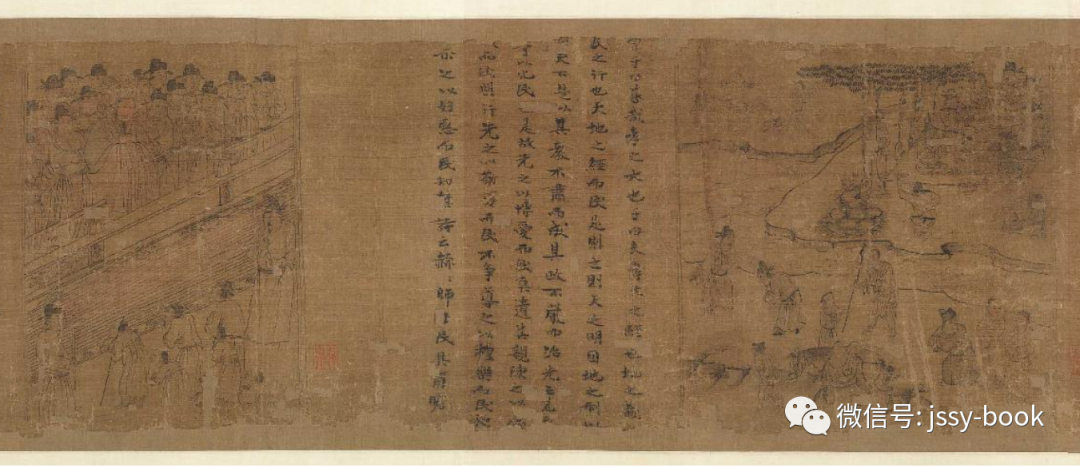 孝之大也子曰夫孝天之經也地之義
民之行也天地之經而民是則之則天之明因地之利以
天下是以其教不肅而成其政不嚴而治先王見
可以化民也是故先之以博愛而民莫遺其親陳之以德
而民興行先之以敬讓而民不爭導之以禮樂而民和
示之以好惡而民知禁詩云赫〻師尹民具爾瞻
微信号: jssy-book